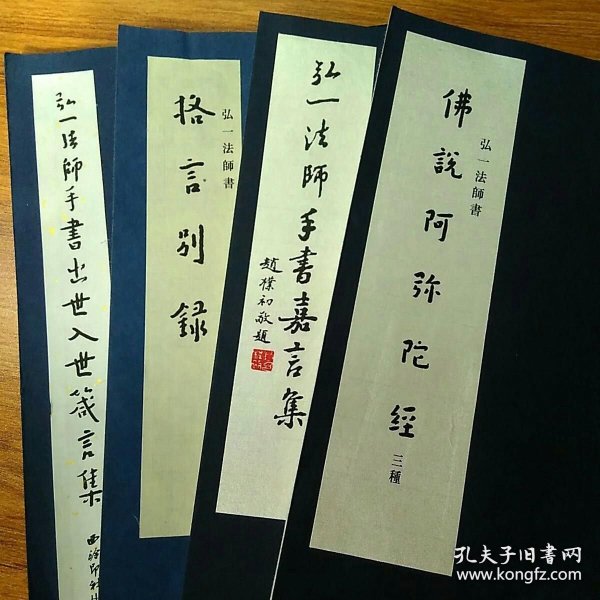 弘一法師手書出世入世箴言集
西泠印社
格言別録
弘一法師書
弘一法師手書嘉言集
趙樸初敬題
佛說阿弥陀經三種
弘一法師書
孔夫子旧書网
www.kongfz.com